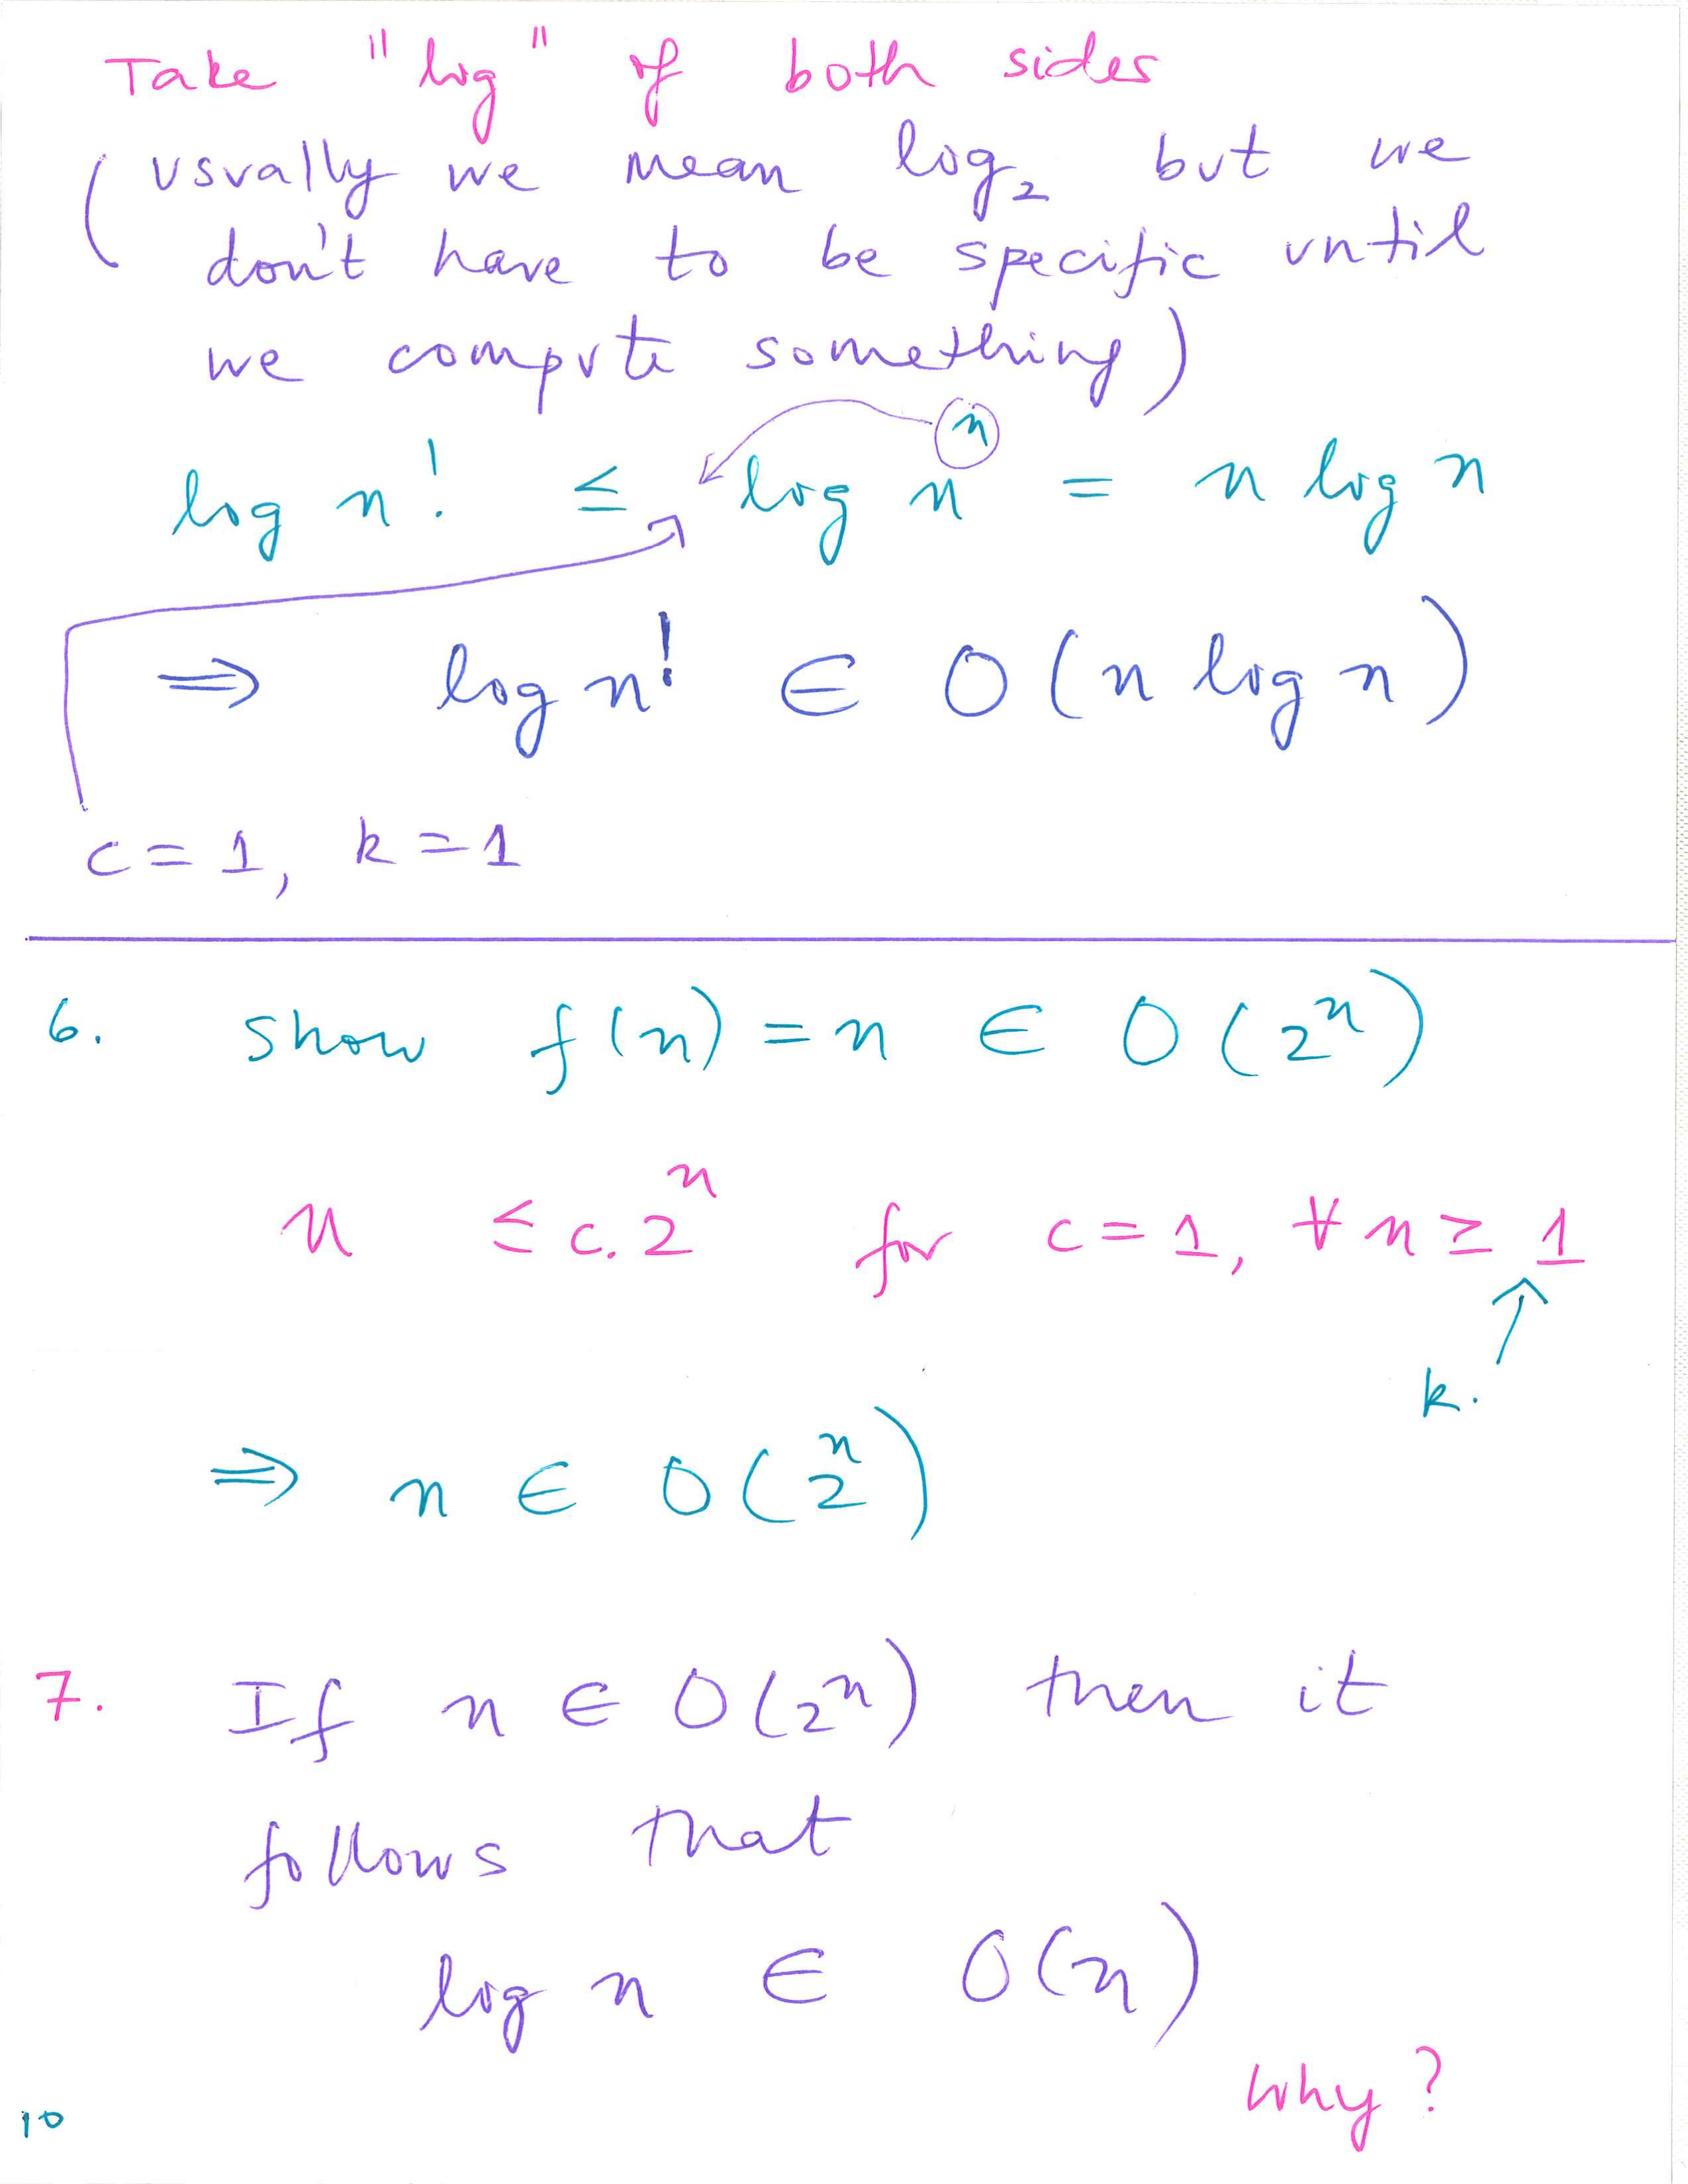 Take "log" of both sides
(usually we mean log₂ but we
don't have to be specific until
we compute something)
log n! ≤ log nⁿ = n log n
⇒ log n! ∈ O(n log n)
c = 1, k = 1
6. Show f(n) = n ∈ O(2ⁿ)
n ≤ c. 2ⁿ for c = 1, ∀ n ≥ 1
k.
⇒ n ∈ O(2ⁿ)
7. If n ∈ O(2ⁿ) then it
follows that
log n ∈ O(n)
Why?
10